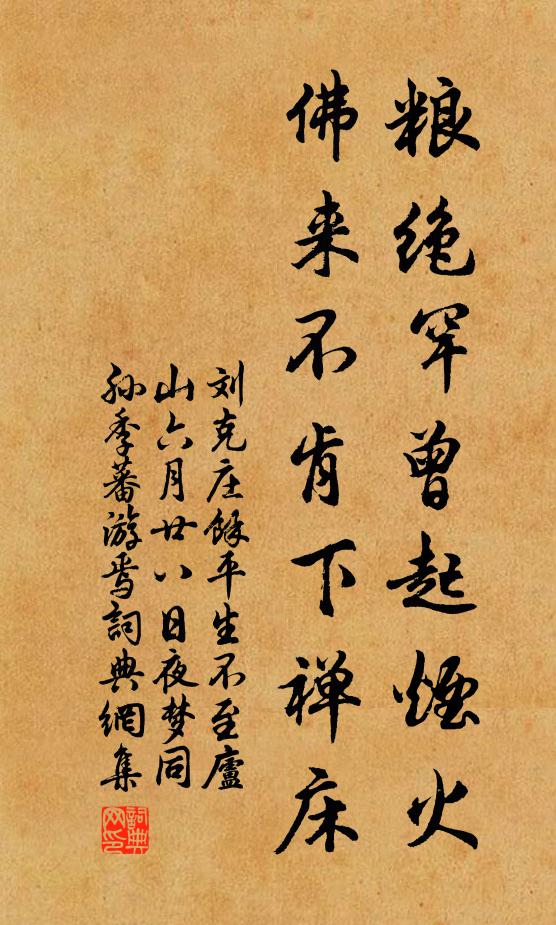 粮绝罕曾起烟火
佛来不肯下禅床
刘克庄馀平生不至廬
山六月廿八日夜梦同
孙季蕃游焉詞典網集
詞典
网印